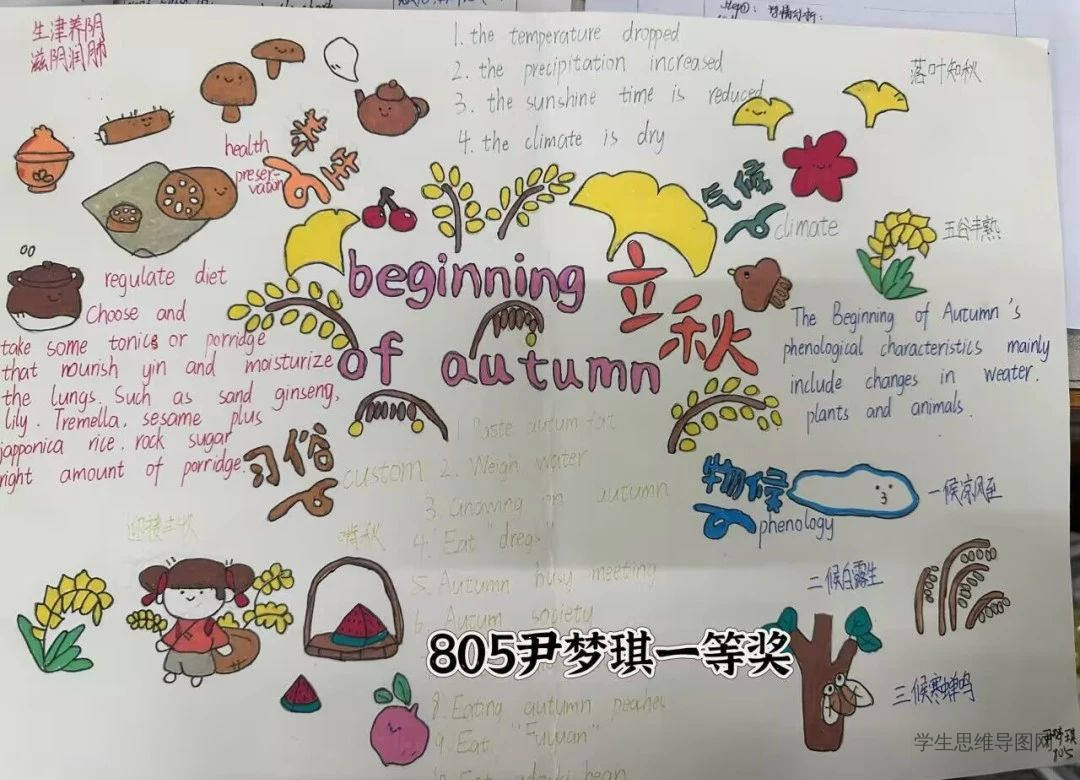 生津养阴
滋阴润肺
1. the temperature dropped
2. the precipitation increased
3. the sunshine time is reduced
4. the climate is dry
落叶知秋
health
preser-
vation
养生
气候
climate
五谷丰熟
beginning
of autumn
立秋
regulate diet
Choose and
take some tonics or porridge
that nourish yin and moisturize
the lungs. Such as sand ginseng,
lily. Tremella. sesame plus
japponica rice. rock sugar
right amount of porridge.
The Beginning of Autumn's
phenological characteristics mainly
include changes in weater.
plants and animals.
习俗
custom
1. Paste autum fat
2. Weigh water
3. Gnawing on autumn
4. Eat "dregs"
5. Autumn busy meeting
6. Autum society
8. Eating autumn peaches
9. Eat "Fuyuan"
bean
物候
phenology
一候凉风至
二候白露生
三候寒蝉鸣
迎接立秋
啃秋
805尹梦琪一等奖
学生思维导图网
805